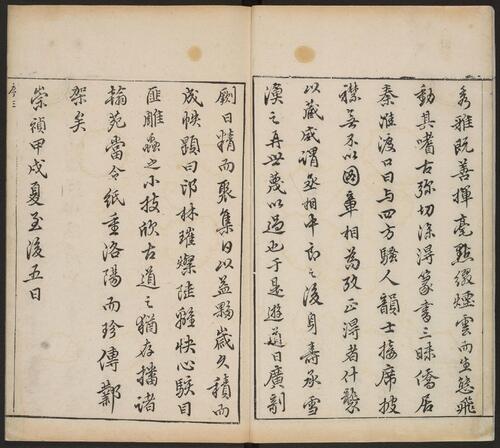 秀雅既善揮毫點綴煙雲而生態飛
動其嗜古弥切深得篆書三昧僑居
秦淮渡口日与四方騷人韻士接席披
襟無不以圖章相為攷正得者什襲
以藏咸謂丞相中郎之後身壽承雪
漁之再世蔑以過也于是遊道日廣剞
劂日精而聚集日以益夥歲久積而
成帙題曰印林璀燦陸離快心駭目
匪雕蟲之小技欣古道之猶存播諸
翰苑當令紙重洛陽而珍傳鄴
架矣
崇禎甲戌夏至後五日
序三